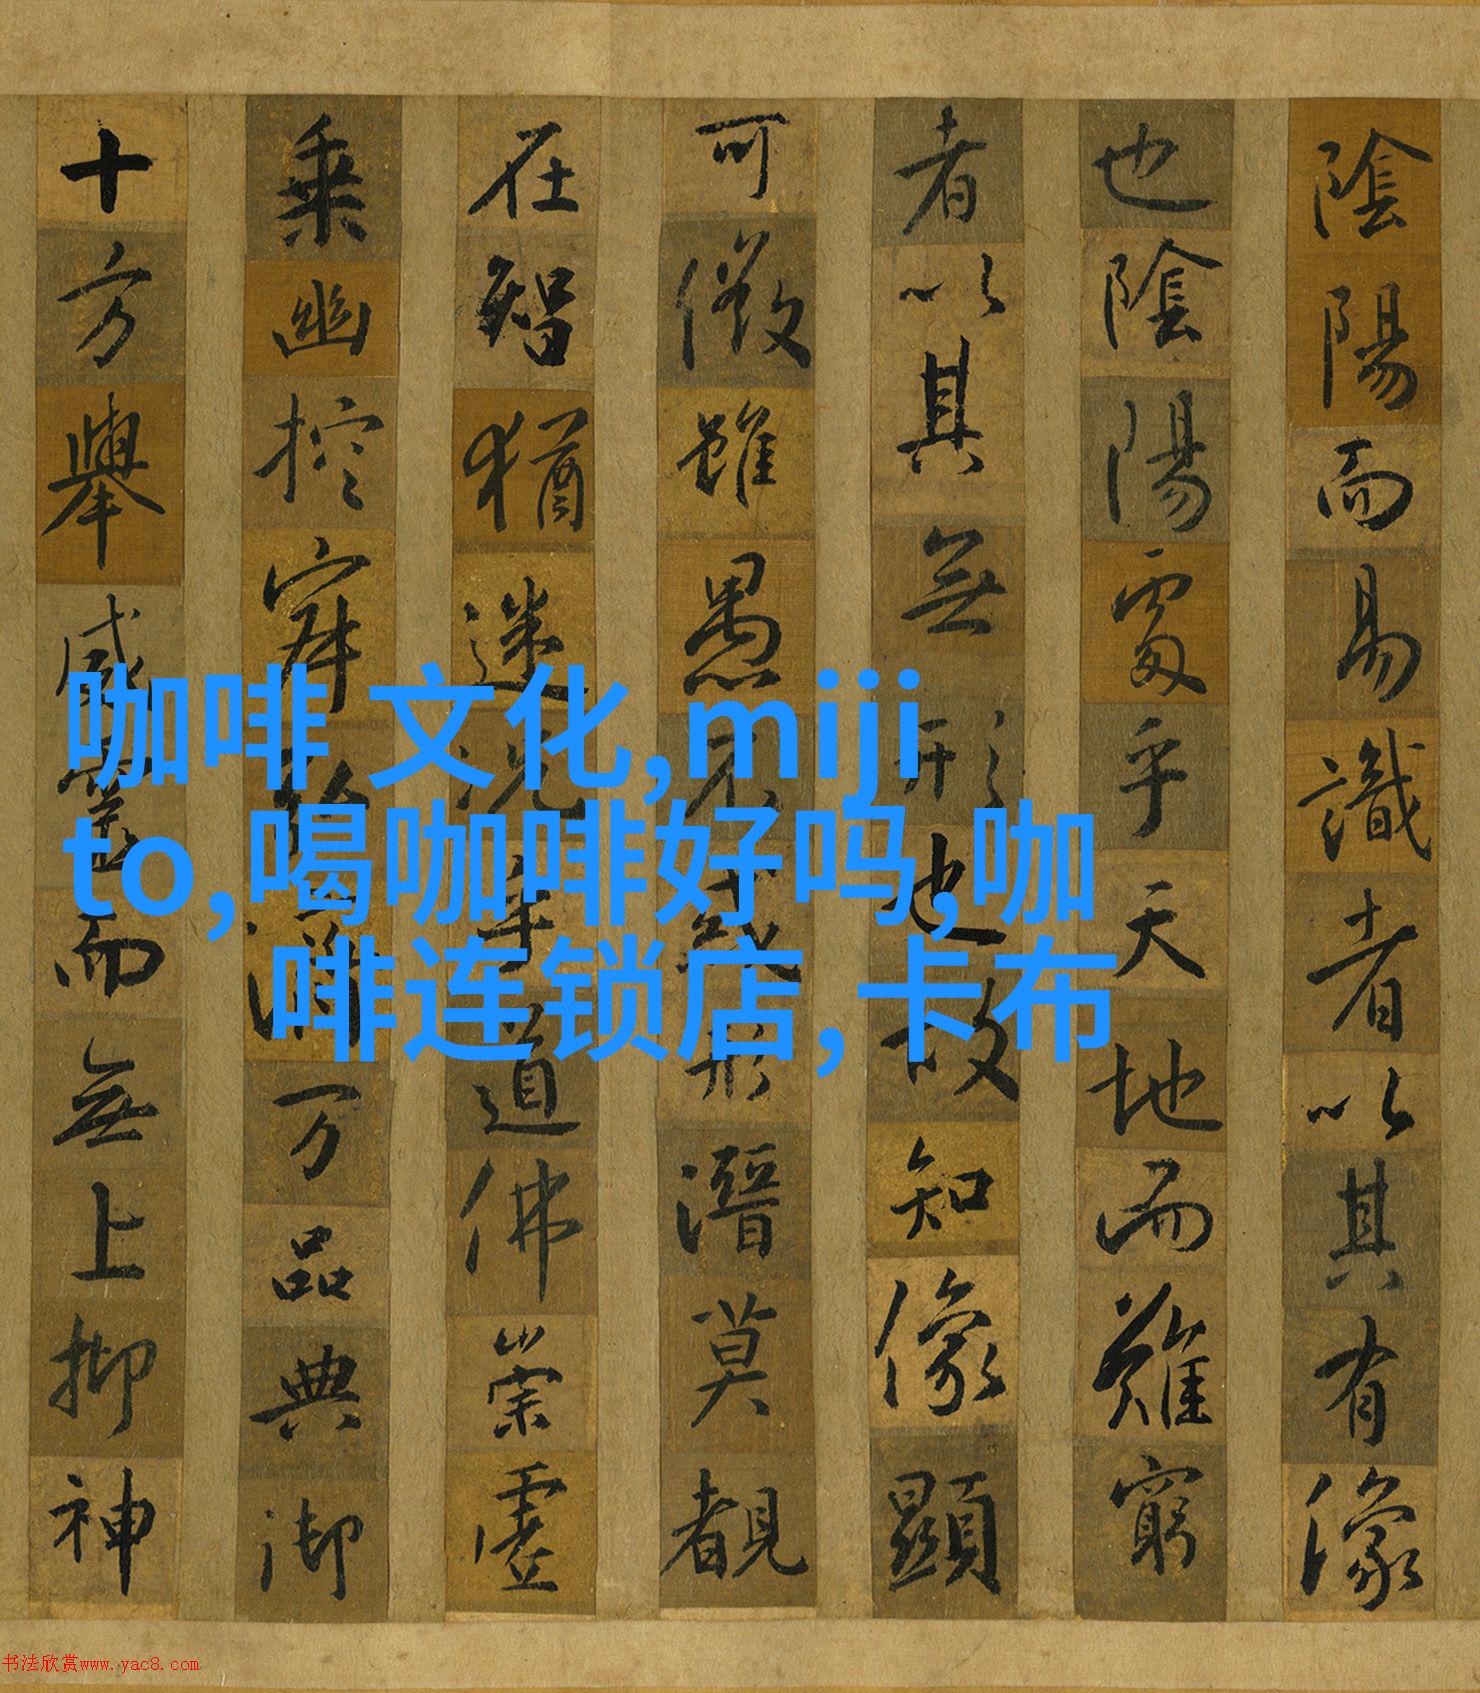 陰陽而易識者以其有像
也陰陽處乎天地而難窮
者以其無形也故知像顯
可徵雖愚不惑形潛莫覩
在智猶迷況乎道佛崇虛
乗幽控寂弘濟万品典御
十方舉威靈而無上抑神
咖啡 文化,miji
to,喝咖啡好吗,咖
啡连锁店,卡布
书法欣赏www.yac8.com